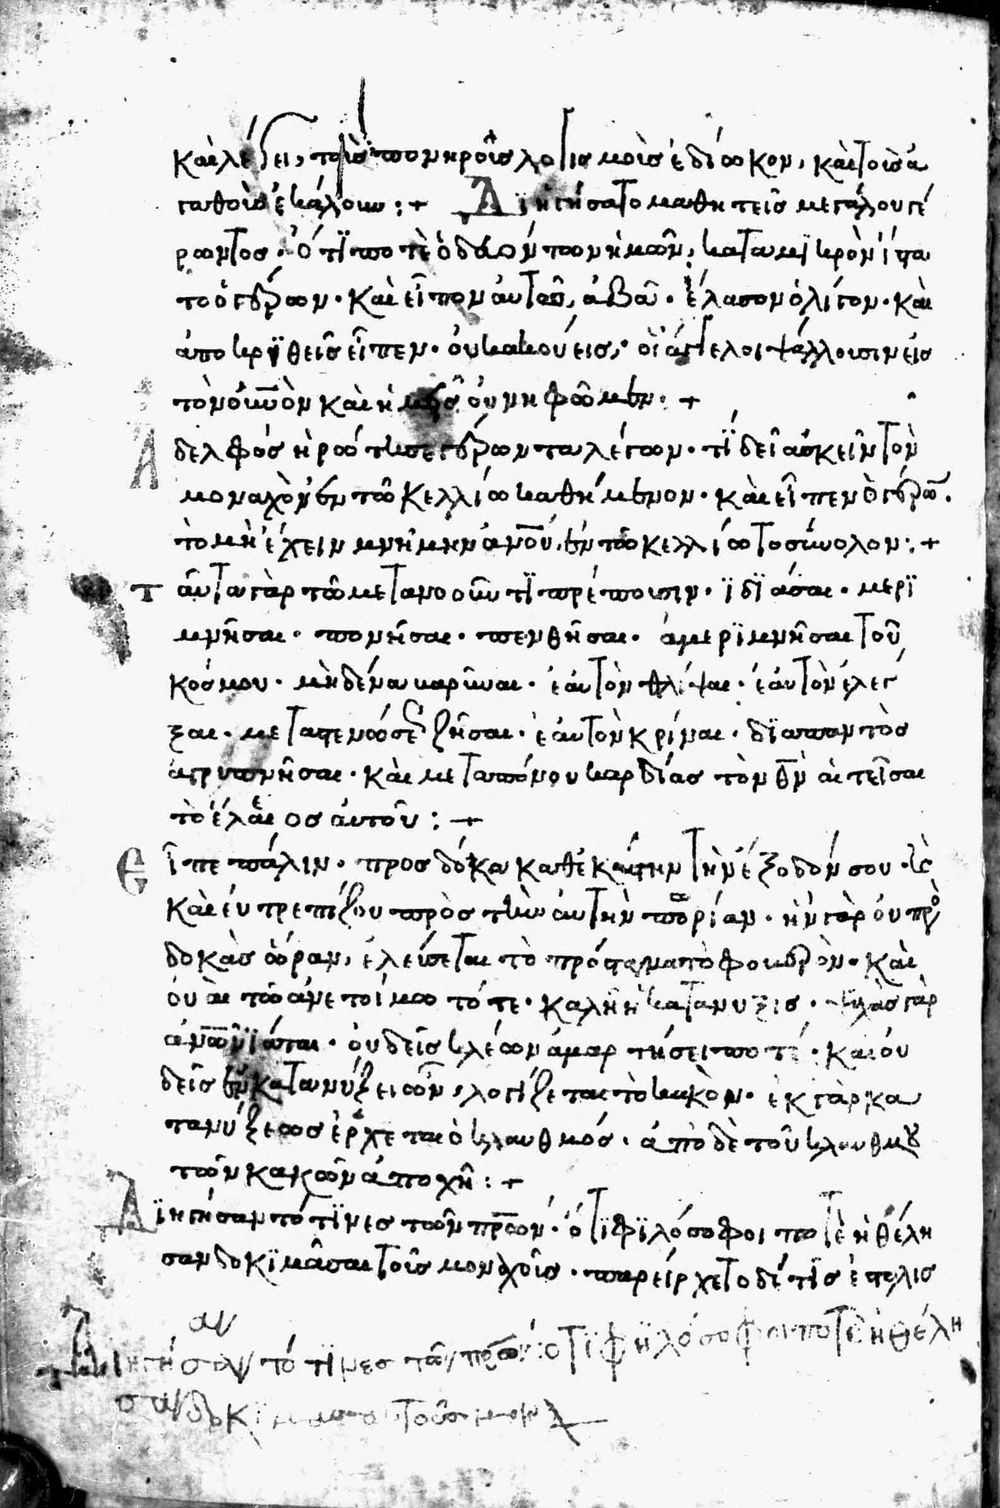 καὶ λέγει, τοὺς πονηροὺς λογισμοὺς ἐδίωκον, καὶ τοὺς ἀ
γαθοὺς ἐκάλουν :+ Διηγήσατο μαθητεὶς μεγάλου γέ
ροντος. ὅτί ποτὲ ὁδευόντων ἡμῶν, κατὰ μϊκρὸν ἵστα
το ὁ γέρων. καὶ εἶπον αὐτῶ, ἀββᾶ. ἔλασον ὀλίγον. καὶ
ἀποκρϊθεὶς εἶπεν. οὐκ ἀκούεις, οἱ ἄγγελοι ψάλλουσιν εἰς
τὸν οὐνὸν καὶ ἡμεῖς οὐ νηφῶμεν. +
Αδελφὸς ἠρώτησε γέροντα λέγων. τί δεῖ ἀσκεῖν τὸν
μοναχὸν ἐν τῶ κελλίω καθήμενον. καὶ εἶπεν ὁ γέρων.
τὸ μὴ ἔχειν μνήμην ἀνοῦ, ἐν τῶ κελλίω τὸ σύνολον :+
Ταῦτα γὰρ τῶ μετανοοῦντϊ πρέπουσιν. ϊδϊάσαι. μερϊ
μνῆσαι. πονῆσαι. πενθῆσαι. ἀμερϊμνῆσαι τοῦ
κόσμου. μὴδένα καρῖναι. ἑαυτὸν θλίψαι. ἑαυτὸν ἐλέγ
ξαι. μετὰ πενώσε ζῆσαι. ἑαυτὸν κρίναι. δϊαπαντὸς
ἀγρυπνῆσαι. καὶ μετὰ πόνου καρδίας τὸν θν αἰτεῖσαι
τὸ ἔλεος αὐτοῦ :+
Εἶπε πάλιν. προσδόκα καθεκάστην τὴν ἔξοδόν σου.
καὶ εὐτρεπίζου πρὸς τὴν αὐτὴν πορίαν. ἣν γὰρ οὐ προσ
δοκᾶς ὥραν, ἐλεύσεται τὸ πρόσταγμα τὸ φοικρὸν. καὶ
οὐαι τῶ ἀνετοίμω τότε. καλὴ ἡ κατάνυξις. γὰρ
ἀνων ϊᾶται. οὐδεὶς κλέων ἁμαρτήσει ποτέ. καὶ οὐ
δεὶς ἐν κατανύξει ὢν, λογίζεται τὸ κακὸν. ἐκ γὰρ κα
τανύξεως ἔρχεται ὁ κλαυθμός. ἀπὸ δὲ τοῦ κλαυθμοῦ
τῶν κακῶν ἀποχῆ :+
Διηγήσαντό τϊνες τῶν πρῶν. ὅτϊ φϊλόσοφοι ποτὲ ἠθέλη
σαν δοκϊμᾶσαι τοὺς μοναχοὺς. παρείρχετο δέ τϊς ἐπολις
αν
Διηγήσαν τό τϊνες τῶν πρῶν ὅτϊ φηλόσοφοι ποτὲ ἠθέλη
σαν δοκϊμασαι τοὺς μοναχ